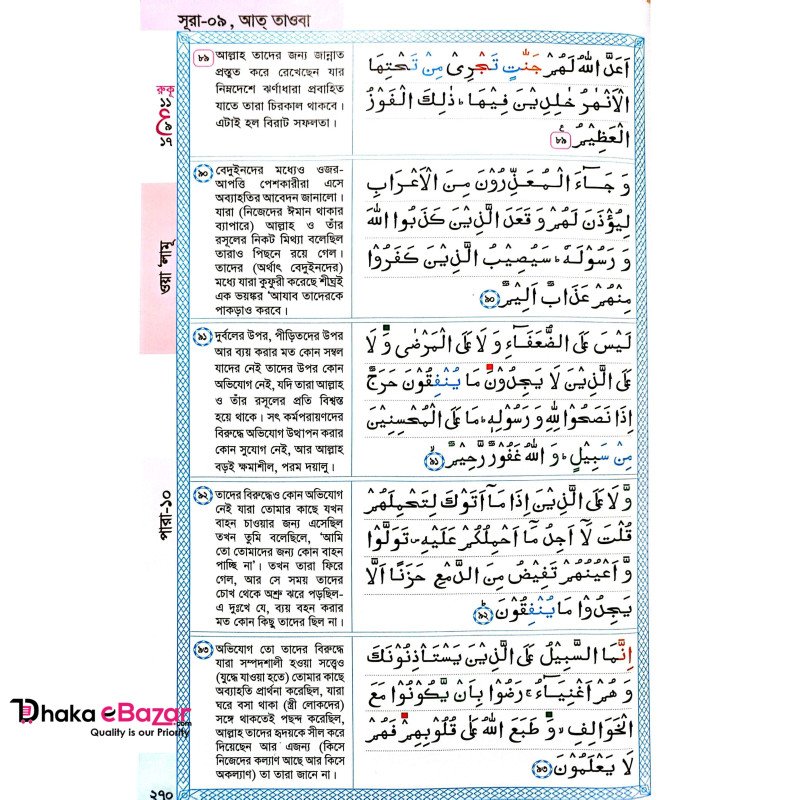 সূরা-০৯, আত্ তাওবা
৮৯ আল্লাহ তাদের জন্য জান্নাত
প্রস্তুত করে রেখেছেন যার
নিম্নদেশে ঝর্ণাধারা প্রবাহিত
যাতে তারা চিরকাল থাকবে।
এটাই হল বিরাট সফলতা।
اَعَدَّ اللّٰهُ لَهُمْ جَنّٰتٍ تَجْرِىْ مِنْ تَحْتِهَا
الْاَنْهٰرُ خٰلِدِيْنَ فِيْهَا ؕ ذٰلِكَ الْفَوْزُ
الْعَظِيْمُ ৮৯
৯০ বেদুইনদের মধ্যেও ওজর-
আপত্তি পেশকারীরা এসে
অব্যাহতির আবেদন জানালো।
যারা (নিজেদের ঈমান থাকার
ব্যাপারে) আল্লাহ ও তাঁর
রসূলের নিকট মিথ্যা বলেছিল
তারাও পিছনে রয়ে গেল।
তাদের (অর্থাৎ বেদুইনদের)
মধ্যে যারা কুফুরী করেছে শীঘ্রই
এক ভয়ঙ্কর ‘আযাব তাদেরকে
পাকড়াও করবে।
وَ جَآءَ الْمُعَذِّرُوْنَ مِنَ الْاَعْرَابِ
لِيُؤْذَنَ لَهُمْ وَ قَعَدَ الَّذِيْنَ كَذَبُوا اللّٰهَ
وَ رَسُوْلَهٗ ؕ سَيُصِيْبُ الَّذِيْنَ كَفَرُوْا
مِنْهُمْ عَذَابٌ اَلِيْمٌ ৯০
৯১ দুর্বলের উপর, পীড়িতদের উপর
আর ব্যয় করার মত কোন সম্বল
যাদের নেই তাদের উপর কোন
অভিযোগ নেই, যদি তারা আল্লাহ
ও তাঁর রসূলের প্রতি বিশ্বস্ত
হয়ে থাকে। সৎ কর্মপরায়ণদের
বিরুদ্ধে অভিযোগ উত্থাপন করার
কোন সুযোগ নেই, আর আল্লাহ
বড়ই ক্ষমাশীল, পরম দয়ালু।
لَيْسَ عَلَى الضُّعَفَآءِ وَ لَا عَلَى الْمَرْضٰى وَ لَا
عَلَى الَّذِيْنَ لَا يَجِدُوْنَ مَا يُنْفِقُوْنَ حَرَجٌ
اِذَا نَصَحُوْا لِلّٰهِ وَ رَسُوْلِهٖ ؕ مَا عَلَى الْمُحْسِنِيْنَ
مِنْ سَبِيْلٍ ؕ وَ اللّٰهُ غَفُوْرٌ رَّحِيْمٌ ৯১
৯২ তাদের বিরুদ্ধেও কোন অভিযোগ
নেই যারা তোমার কাছে যখন
বাহন চাওয়ার জন্য এসেছিল
তখন তুমি বলেছিলে, ‘আমি
তো তোমাদের জন্য কোন বাহন
পাচ্ছি না’। তখন তারা ফিরে
গেল, আর সে সময় তাদের
চোখ থেকে অশ্রু ঝরে পড়ছিল-
এ দুঃখে যে, ব্যয় বহন করার
মত কোন কিছু তাদের ছিল না।
وَّ لَا عَلَى الَّذِيْنَ اِذَا مَاۤ اَتَوْكَ لِتَحْمِلَهُمْ
قُلْتَ لَاۤ اَجِدُ مَاۤ اَحْمِلُكُمْ عَلَيْهِ ۪ تَوَلَّوْا
وَّ اَعْيُنُهُمْ تَفِيْضُ مِنَ الدَّمْعِ حَزَنًا اَلَّا
يَجِدُوْا مَا يُنْفِقُوْنَ ৯২
৯৩ অভিযোগ তো তাদের বিরুদ্ধে
যারা সম্পদশালী হওয়া সত্ত্বেও
(যুদ্ধে যাওয়া হতে) তোমার কাছে
অব্যাহতি প্রার্থনা করেছিল, যারা
ঘরে বসা থাকা (স্ত্রী লোকদের)
সঙ্গে থাকতেই পছন্দ করেছিল,
আল্লাহ তাদের হৃদয়কে সীল করে
দিয়েছেন আর এজন্য (কিসে
নিজেদের কল্যাণ আছে আর কিসে
অকল্যাণ) তা তারা জানে না।
اِنَّمَا السَّبِيْلُ عَلَى الَّذِيْنَ يَسْتَاْذِنُوْنَكَ
وَ هُمْ اَغْنِيَآءُ ۚ رَضُوْا بِاَنْ يَّكُوْنُوْا مَعَ
الْخَوَالِفِ ۙ وَ طَبَعَ اللّٰهُ عَلٰى قُلُوْبِهِمْ فَهُمْ
لَا يَعْلَمُوْنَ ৯৩
রুকূ
১৭
৯
১১
ওয়া ‘লামূ
পারা-১০
২৭০
Dhaka eBazar.com
Quality is our Priority